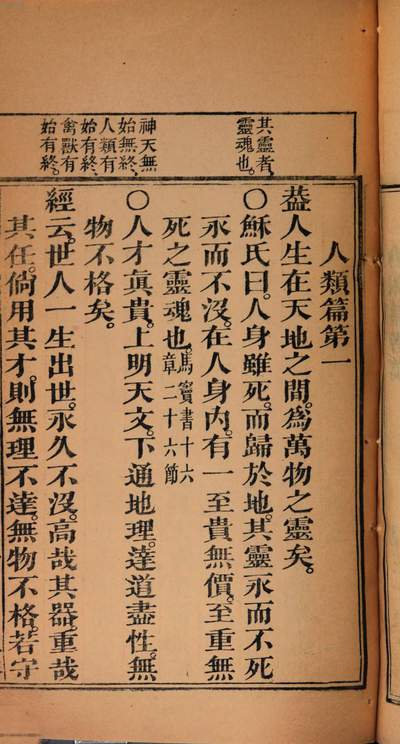 其靈者、
靈魂也。
神天無
始無終、
人類有
始有終、
禽獸有
始有終。
人類篇第一
葢人生在天地之間。為萬物之靈矣。
〇穌氏曰。人身雖死。而歸於地。其靈永而不死
永而不沒。在人身內。有一至貴無價。至重無
死之靈魂也。馬竇書十六
章二十六節
〇人才眞貴。上明天文。下通地理。達道盡性。無
物不格矣。
經云。世人一生出世。永久不沒。高哉其器。重哉
其任。倘用其才。則無理不達。無物不格。若守